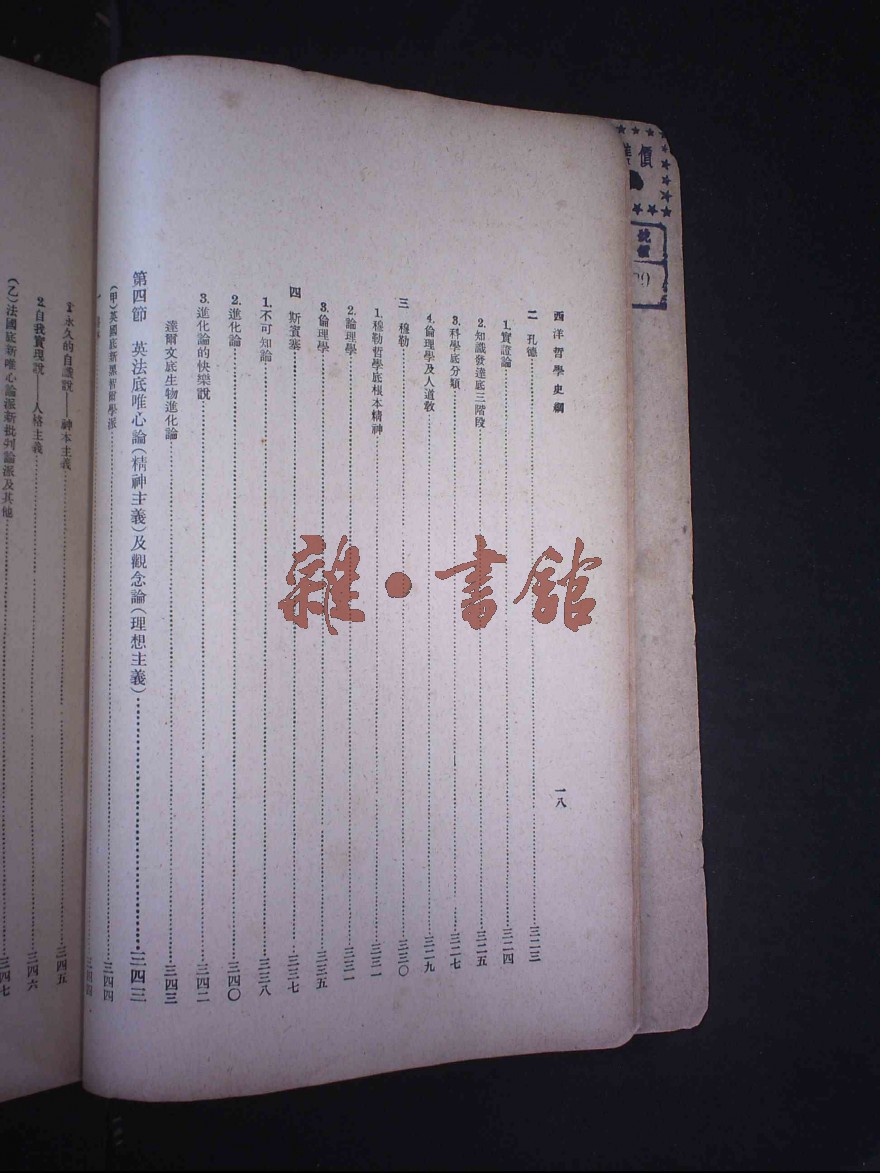 西洋哲學史綱
一八
二 孔德…………三二三
1.實證論…………三二四
2.知識發達底三階段…………三二五
3.科學底分類…………三二七
4.倫理學及人道敎…………三二九
三 穆勒…………三三〇
1.穆勒哲學底根本精神…………三三一
2.論理學…………三三一
3.倫理學…………三三五
四 斯賓塞…………三三七
1.不可知論…………三三八
2.進化論…………三四〇
3.進化論的快樂說…………三四二
達爾文底生物進化論…………三四三
第四節 英法底唯心論(精神主義)及觀念論(理想主義)…………三四三
(甲)英國底新黑智爾學派…………三四四
1 永久的自識說——神本主義…………三四五
2.自我實現說——人格主義…………三四六
(乙)法國底新唯心論派新批判論派及其他…………三四七
雜·書館
價